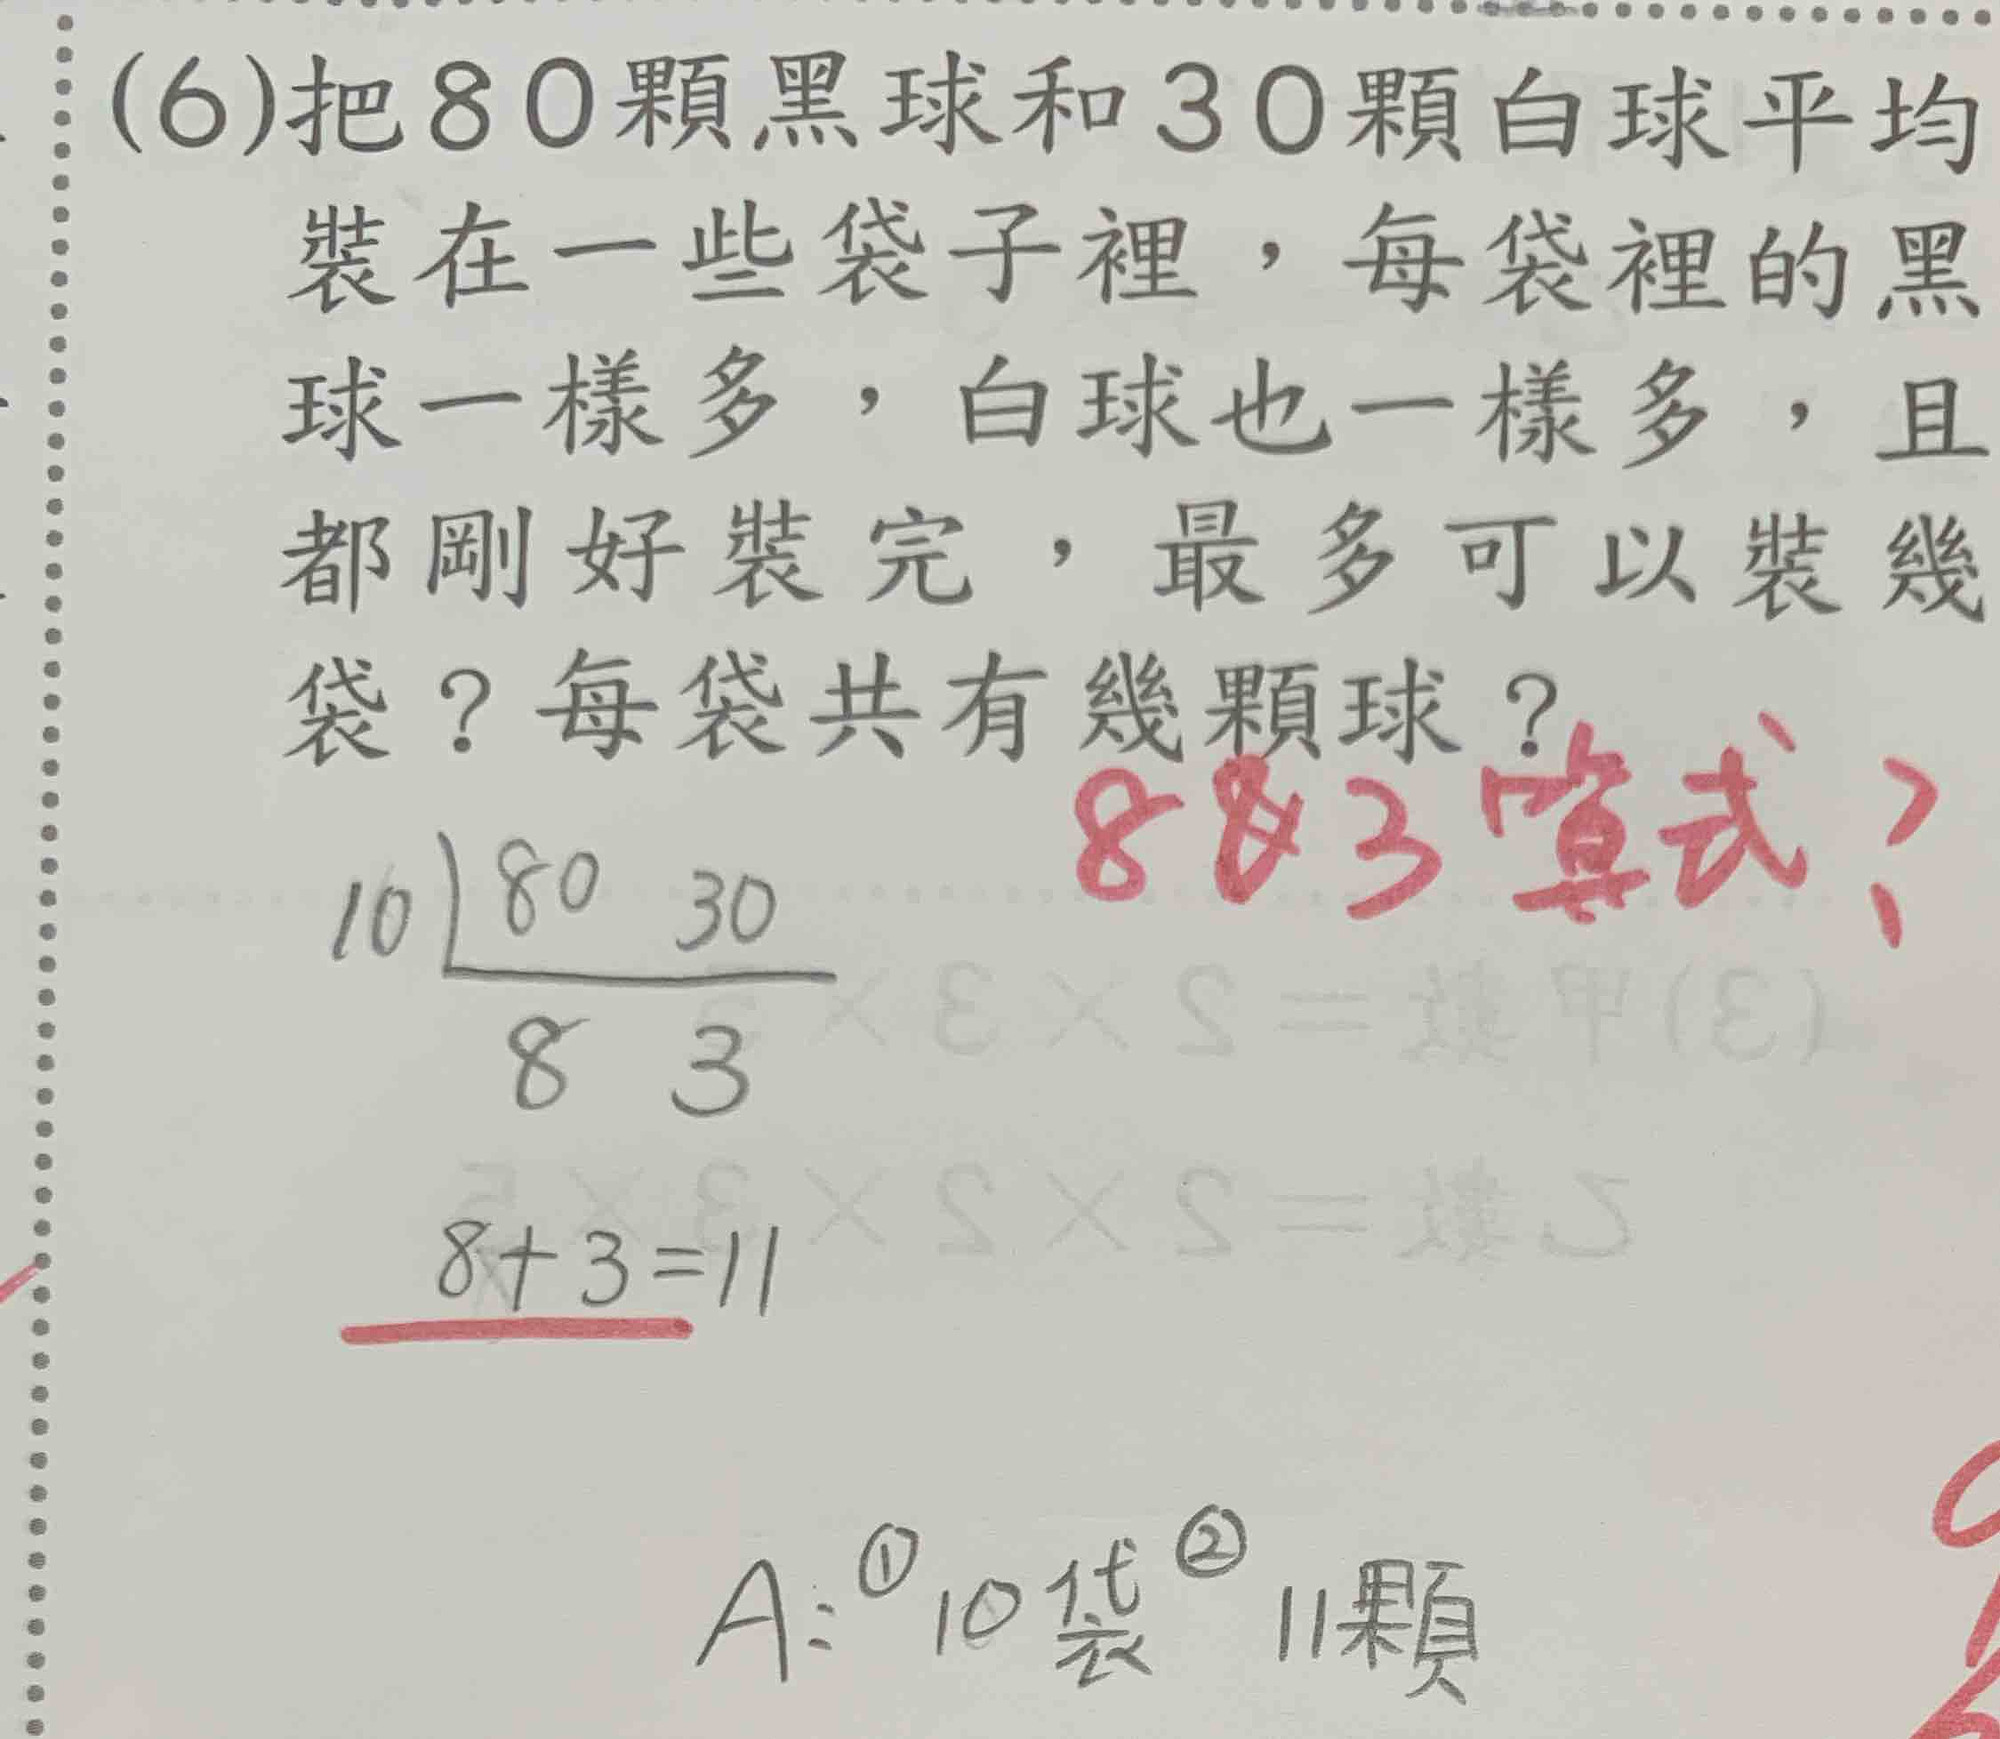 (6)把80顆黑球和30顆白球平均
裝在一些袋子裡，每袋裡的黑
球一樣多，白球也一樣多，且
都剛好裝完，最多可以裝幾
袋？每袋共有幾顆球？
8&3算式？
10 80 30
8 3
(3)甲數=2×3×5
乙數=2×2×3×5
8+3=11
A:①10袋②11顆